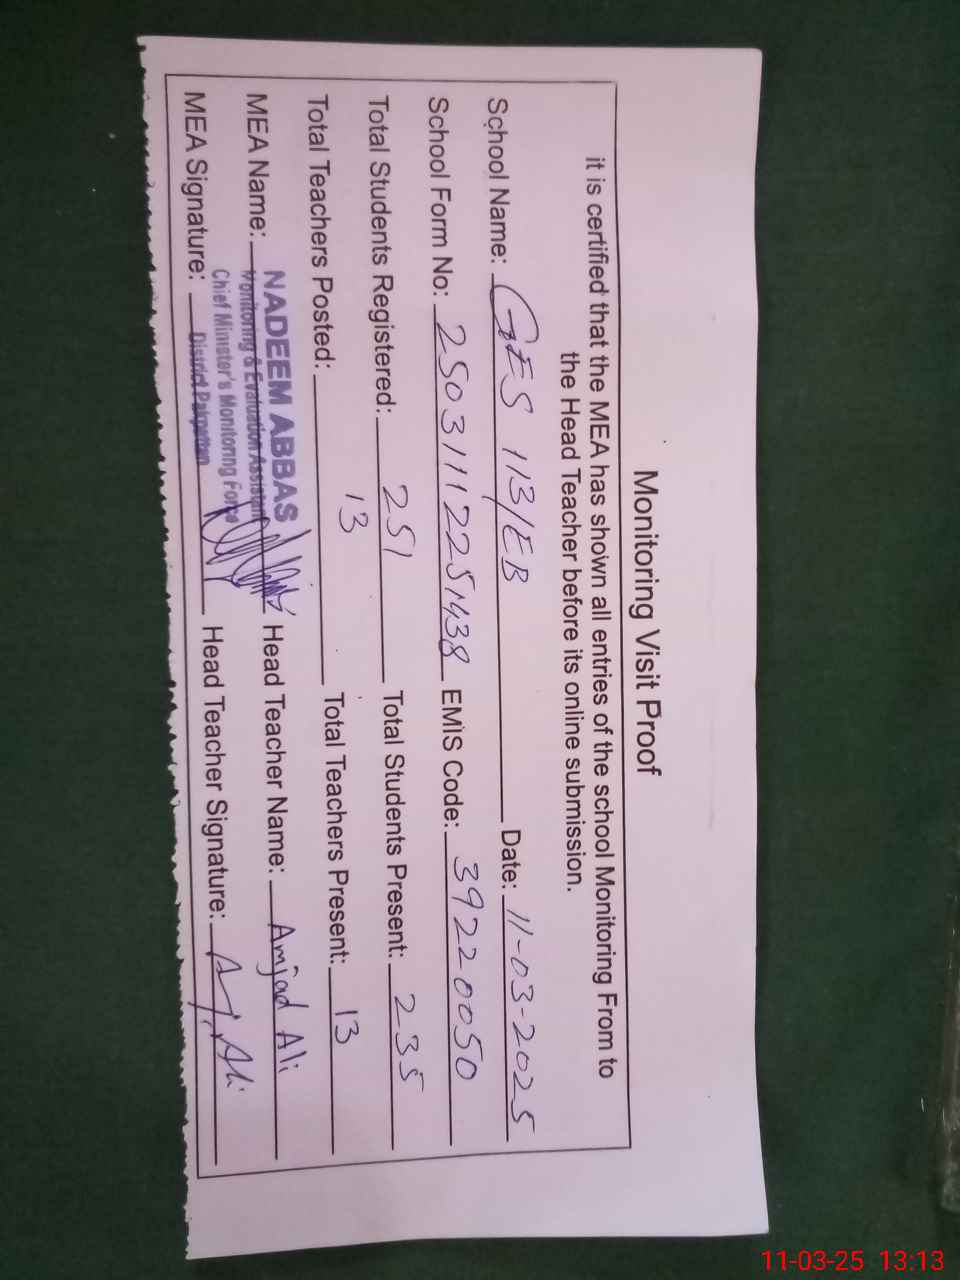 Monitoring Visit Proof
it is certified that the MEA has shown all entries of the school Monitoring From to
the Head Teacher before its online submission.
School Name: GES 113/EB Date: 11-03-2025
School Form No: 25031112251438 EMIS Code: 39220050
Total Students Registered: 251 Total Students Present: 235
Total Teachers Posted: 13 Total Teachers Present: 13
MEA Name: NADEEM ABBAS Head Teacher Name: Amjad Ali
Monitoring & Evaluation Assistant
Chief Minister's Monitoring Force
MEA Signature: District Pakpattan Head Teacher Signature: A.j. Ali
11-03-25 13:13